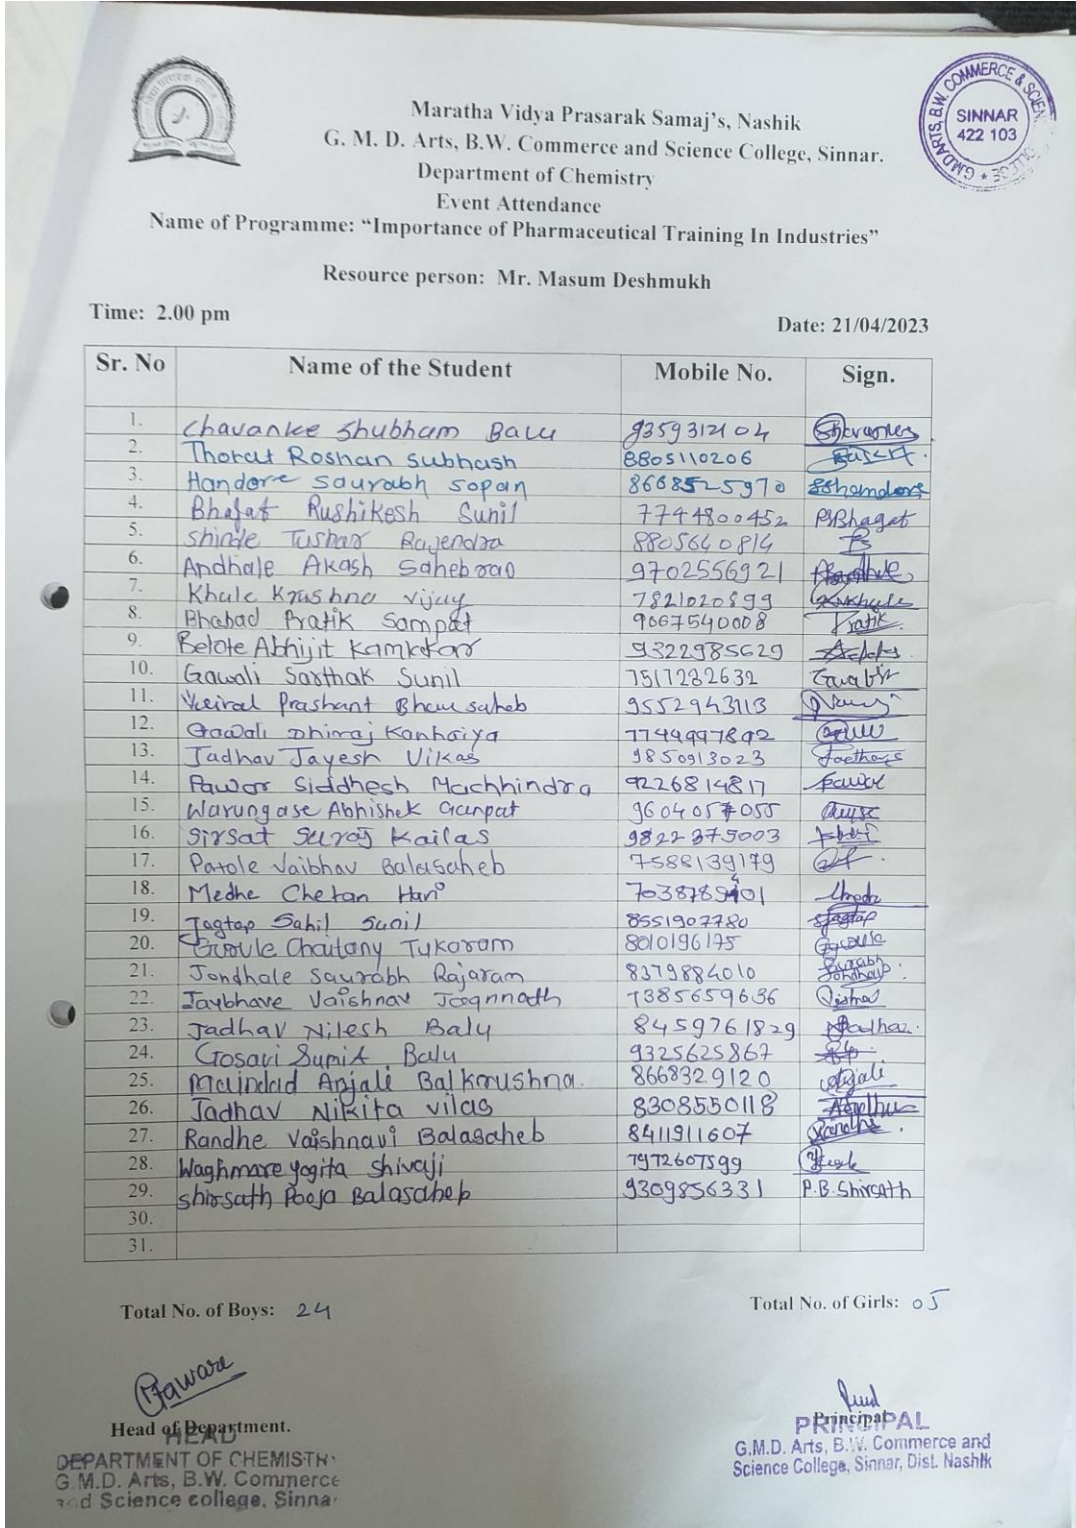 Maratha Vidya Prasarak Samaj's, Nashik
G. M. D. Arts, B.W. Commerce and Science College, Sinnar.
Department of Chemistry
Event Attendance
Name of Programme: “Importance of Pharmaceutical Training In Industries”
Resource person: Mr. Masum Deshmukh
G.M.D ARTS, B.W. COMMERCE & SCIENCE COLLEGE
SINNAR
422 103
Time: 2.00 pm
Date: 21/04/2023
Sr. No Name of the Student Mobile No. Sign.
1. Chavanke Shubham Balu 9359312104
2. Thorat Roshan Subhash 8805110206
3. Handore Saurabh Sopan 8668525970
4. Bhagat Rushikesh Sunil 7744800452 RSBhagat
5. Shinde Tushar Rajendra 8805640814
6. Andhale Akash Sahebrao 9702556921
7. Khule Krushna Vijay 7821020899
8. Bhabad Pratik Sampat 9067540008 Pratik
9. Belote Abhijit Kamlakar 9322985629
10. Gawali Sarthak Sunil 7517282632
11. Prashant Bhausaheb 9552943113
12. Gawali Dhiraj Kanhaiya 7744997892
13. Jadhav Jayesh Vikas 9850913023
14. Pawar Siddhesh Machhindra 9226814817 Pawar
15. Warungase Abhishek Ganpat 9604057055
16. Sirsat Suraj Kailas 9822375003
17. Patole Vaibhav Balasaheb 7588139179
18. Medhe Chetan Hari
19. Jagtap Sahil Sunil 8551907780 Jagtap
20. Chaitany Tukaram 8010196175
21. Jondhale Saurabh Rajaram 8379884010
22. Jaybhave Vaishnav Jagnnath 7385659636
23. Jadhav Nilesh Balu 8459761829
24. Gosavi Sumit Balu 9325625867
25. Maindad Anjali Balkrushna. 8668329120 Anjali
26. Jadhav Nikita Vilas 8308550118
27. Randhe Vaishnavi Balasaheb 8411911607 Randhe
28. Waghmare yogita Shivaji 7972607599
29. Shirsath Pooja Balasaheb 9309856331 P.B.Shirsath
30.
31.
Total No. of Boys: 24
Total No. of Girls: 05
Head of Department.
HEAD
DEPARTMENT OF CHEMISTRY
G.M.D. Arts, B.W. Commerce
and Science college, Sinnar
Principal
PRINCIPAL
G.M.D. Arts, B.W. Commerce and
Science College, Sinnar, Dist. Nashik